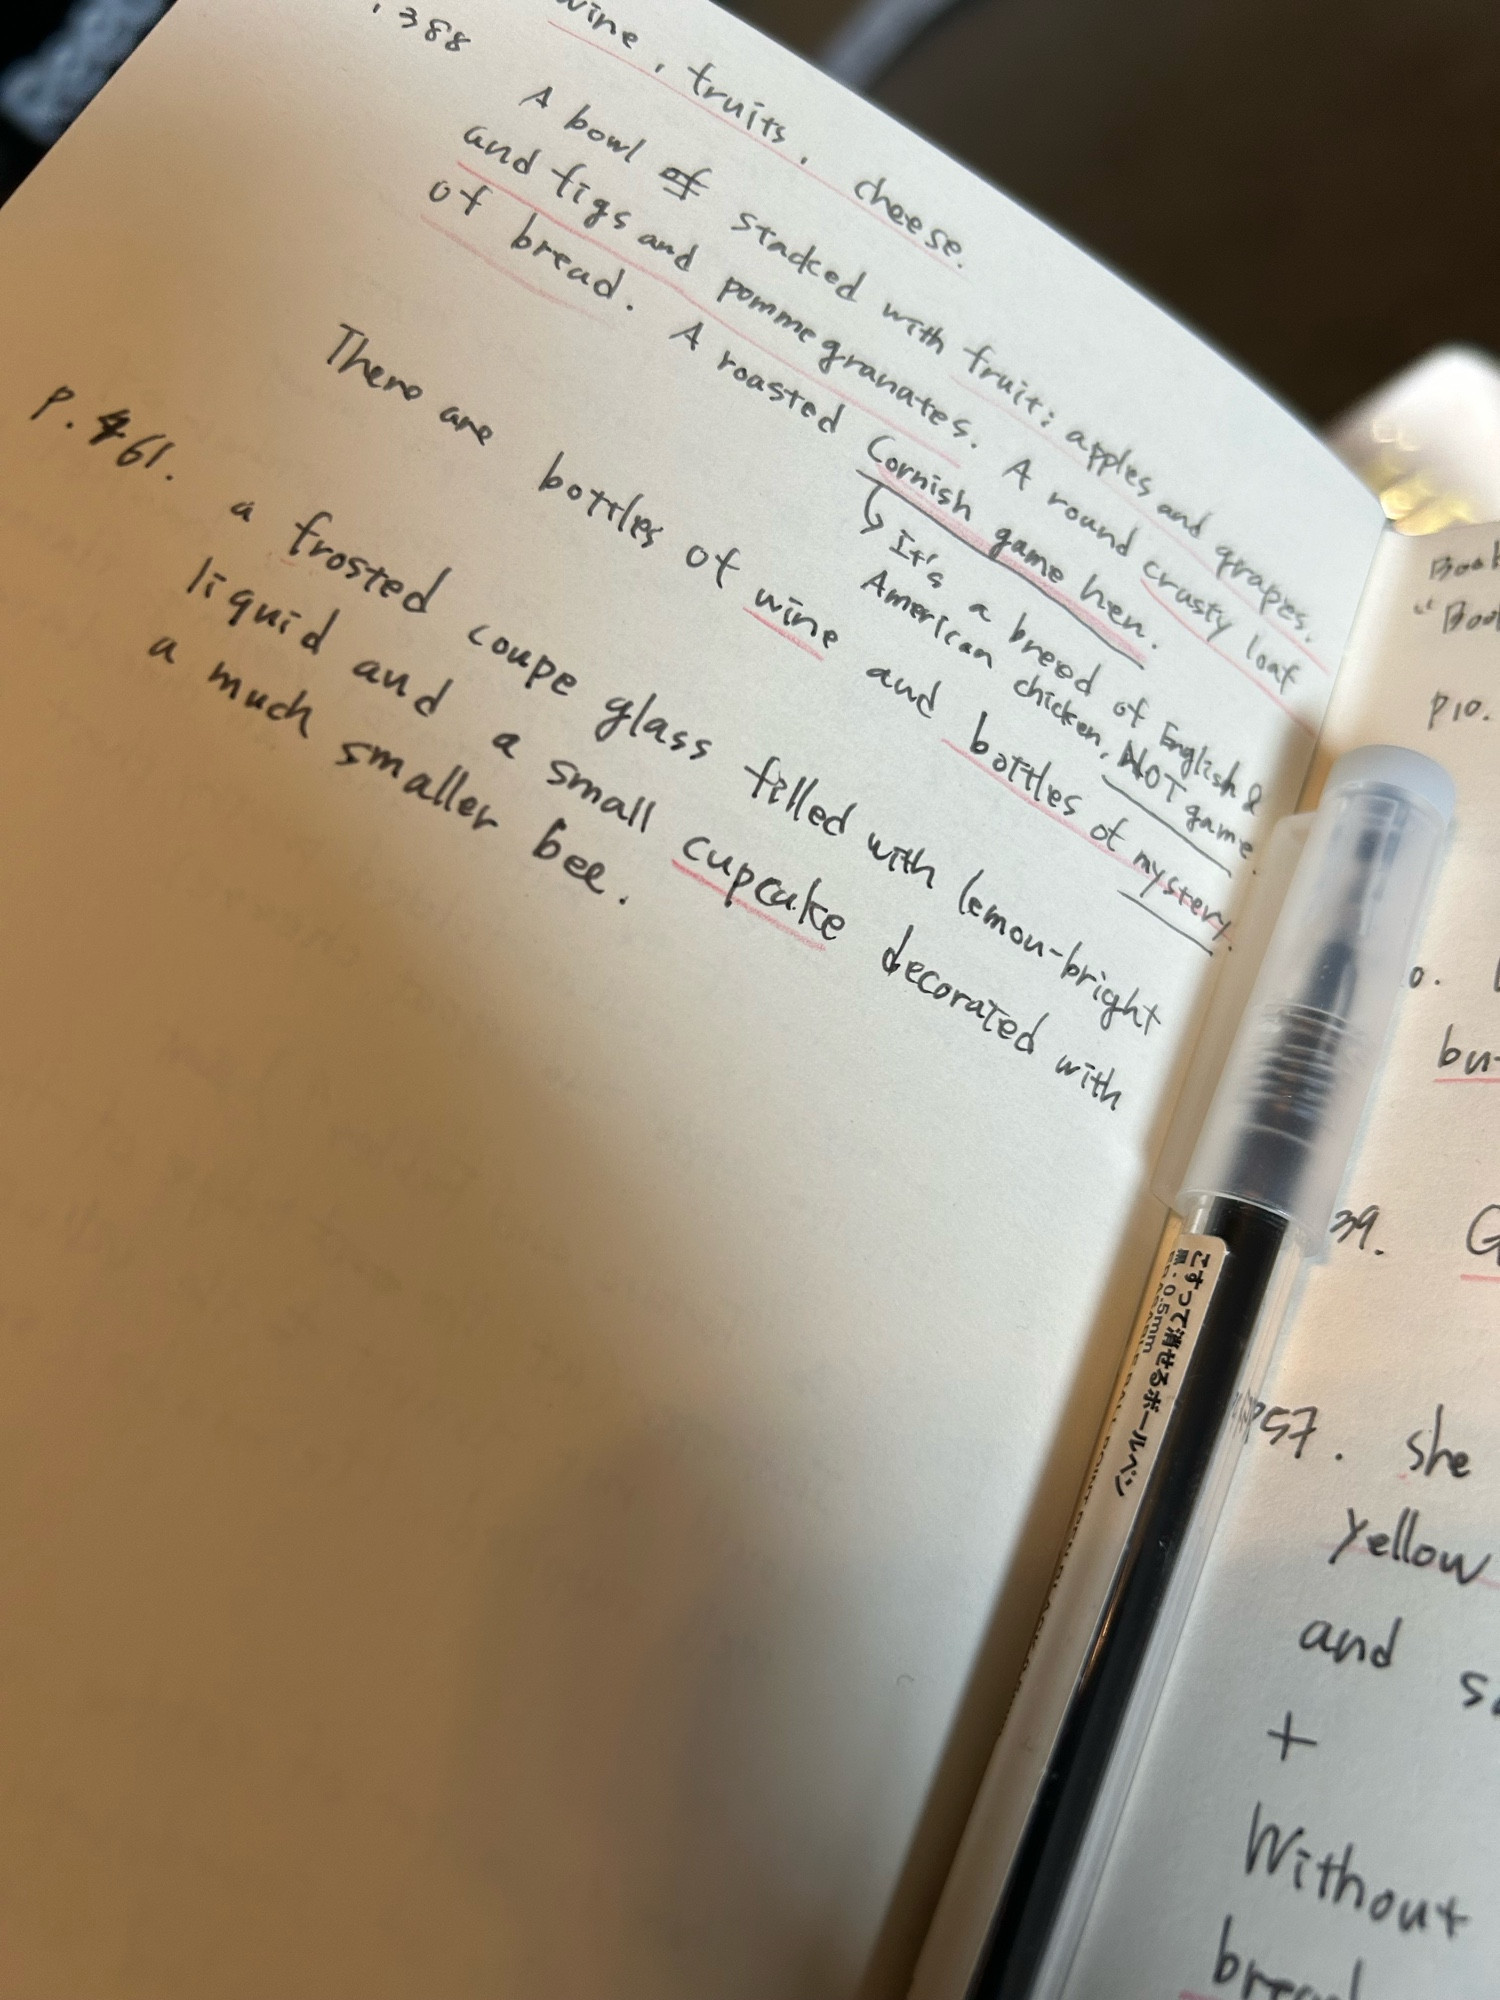 wine, fruits, cheese.
. 388
A bowl of stacked with fruit: apples and grapes.
and figs and pommegranates. A round crusty loaf
of bread. A roasted Cornish game hen.
It's a breed of English &
American chicken, NOT game.
There are bottles of wine and bottles of mystery.
P. 461.
a frosted coupe glass filled with lemon-bright
liquid and a small cupcake decorated with
a much smaller bee.
P10.
39.
P57. She
yellow
and
+
Without
bread
こすって消せるボールペン
黒:0.5mm